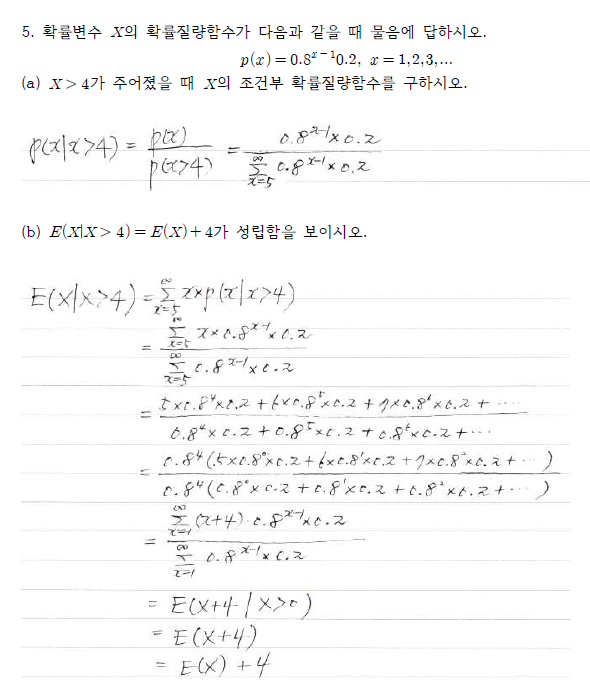 5. 확률변수 X의 확률질량함수가 다음과 같을 때 물음에 답하시오.
p(x) = 0.8^{x-1}0.2, x = 1,2,3,...
(a) X > 4가 주어졌을 때 X의 조건부 확률질량함수를 구하시오.
p(x|x>4) = \frac{p(x)}{p(x>4)} = \frac{0.8^{x-1}×0.2}{\sum_{x=5}^{∞} 0.8^{x-1}×0.2}
(b) E(X|X > 4) = E(X)+4가 성립함을 보이시오.
E(X|X>4) = \sum_{x=5}^{∞} x×p(x|x>4)
= \frac{\sum_{x=5}^{∞} x×0.8^{x-1}×0.2}{\sum_{x=5}^{∞} 0.8^{x-1}×0.2}
= \frac{5×0.8^4×0.2+6×0.8^5×0.2+7×0.8^6×0.2+····}{0.8^4×0.2+0.8^5×0.2+0.8^6×0.2+···}
= \frac{0.8^4(5×0.8^0×0.2+6×0.8^1×0.2+7×0.8^2×0.2+···)}{0.8^4(0.8^0×0.2+0.8^1×0.2+0.8^2×0.2+···)}
= \frac{\sum_{x=1}^{∞} (x+4)·0.8^{x-1}×0.2}{\sum_{x=1}^{∞} 0.8^{x-1}×0.2}
= E(X+4|X>0)
= E(X+4)
= E(X)+4